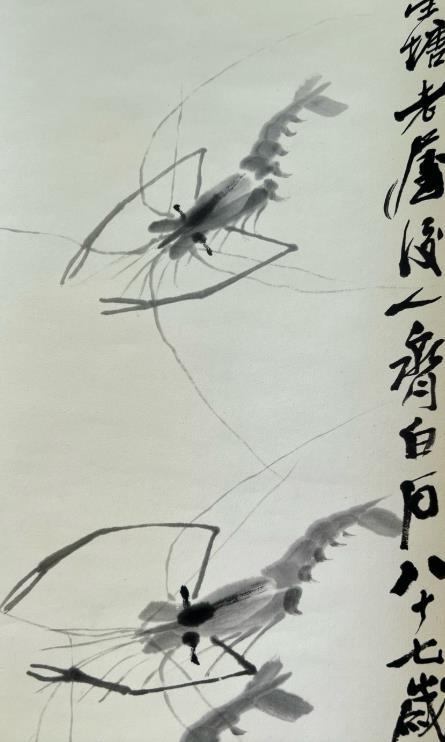 星塘老屋後人齊白石八十七歲